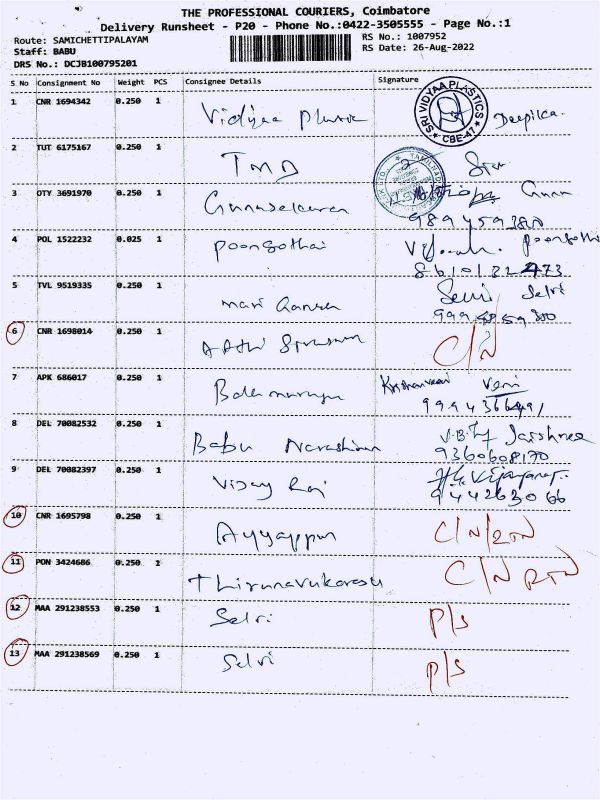 THE PROFESSIONAL COURIERS, Coimbatore
Delivery Runsheet - P20 - Phone No.:0422-3505555 - Page No.:1
Route: SAMICHETTIPALAYAM
RS No.: 1007952
Staff: BABU
RS Date: 26-Aug-2022
DRS No.: DCJB100795201
S No Consignment No Weight PCS Consignee Details Signature
1 CNR 1694342 0.250 1 Vidyaa SRI VIDYAA PLASTICS CBE-47 Deepika
2 TUT 6175167 0.250 1 TMB
3 OTY 3691970 0.250 1 Gunasekaran
4 POL 1522232 0.025 1 Poongothai Poongothai
8610132473
5 TVL 9519335 0.250 1 Mari Selvi
6 CNR 1698014 0.250 1 C/N
7 APK 686017 0.250 1 Balamurugan Krishnaveni Veni
8 DEL 70082532 0.250 1 Babu Narashiman Jaishnee
9360608170
9 DEL 70082397 0.250 1 Vijay Raj
944263066
10 CNR 1695798 0.250 1 Ayyappan C/N/RTN
11 PON 3424686 0.250 1 Thirunavukarasu C/N RTN
12 MAA 291238553 0.250 1 Selvi P/S
13 MAA 291238569 0.250 1 Selvi P/S